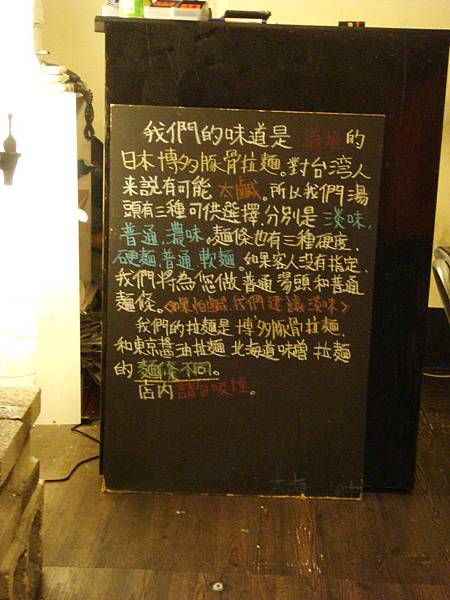 我們的味道是 道地的
日本博多豚骨拉麵。對台湾人
来說有可能 太鹹。所以我們湯
頭有三種可供選擇分別是 淡味,
普通.濃味。麵條也有三種硬度.
硬麵 普通 軟麵。如果客人沒有指定.
我們將為您做 普通湯頭和普通
麵條。<如果怕鹹.我們建議淡味>
我們的拉麵是 博多豚骨拉麵.
和東京醬油拉麵 北海道味噌 拉麵
的 麵條不同。
店内 請勿吸煙。